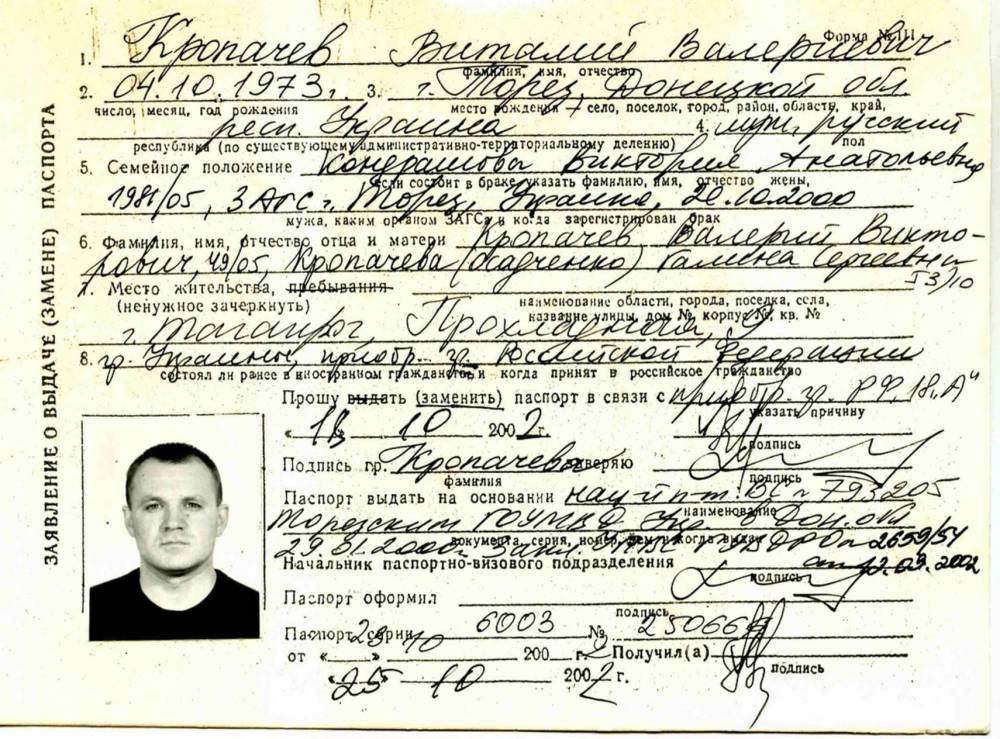 Форма № 1П
1. Кропачев Виталий Валериевич
фамилия, имя, отчество
2. 04.10.1973г. 3. г. Торез, Донецкой обл
число, месяц, год рождения место рождения — село, поселок, город, район, область, край,
респ. Украина 4. муж, русский
республика (по существующему административно-территориальному делению) пол
5. Семейное положение Кондрашова Виктория Анатольевна
если состоит в браке, указать фамилию, имя, отчество жены,
1981/05, ЗАГС г. Торез, Украина, 20.10.2000
мужа, каким органом ЗАГСа и когда зарегистрирован брак
6. Фамилия, имя, отчество отца и матери Кропачев Валерий Викто-
рович, 49/05, Кропачева (Осадченко) Галина Сергеевна
53/10
7. Место жительства, пребывания
(ненужное зачеркнуть) наименование области, города, поселка, села,
название улицы, дом №, корпус №, кв. №
г. Таганрог, Прохладная, 9
8. гр. Украины, приобр. гр. Российской Федерации
состоял ли ранее в иностранном гражданстве и когда принят в российское гражданство
Прошу выдать (заменить) паспорт в связи с приобр. гр. РФ, 18 „А"
указать причину
« 18 » 10 2002г.
подпись
Подпись гр. Кропачева заверяю
фамилия подпись
Паспорт выдать на основании нац. п-т. ВС № 793205
наименование
Торезским ГОУМВД Укр. в Дон. обл
документа, серия, номер, кем и когда выдан
29.01.2000г. закл. ПВС ГУВД РО № 2659/54
Начальник паспортно-визового подразделения от 12.09.2002
подпись
Паспорт оформил
подпись
Паспорт серии 6003 № 250667
от « 23 » 10 2002 г. Получил(а)
подпись
25 10 2002 г.
ЗАЯВЛЕНИЕ О ВЫДАЧЕ (ЗАМЕНЕ) ПАСПОРТА